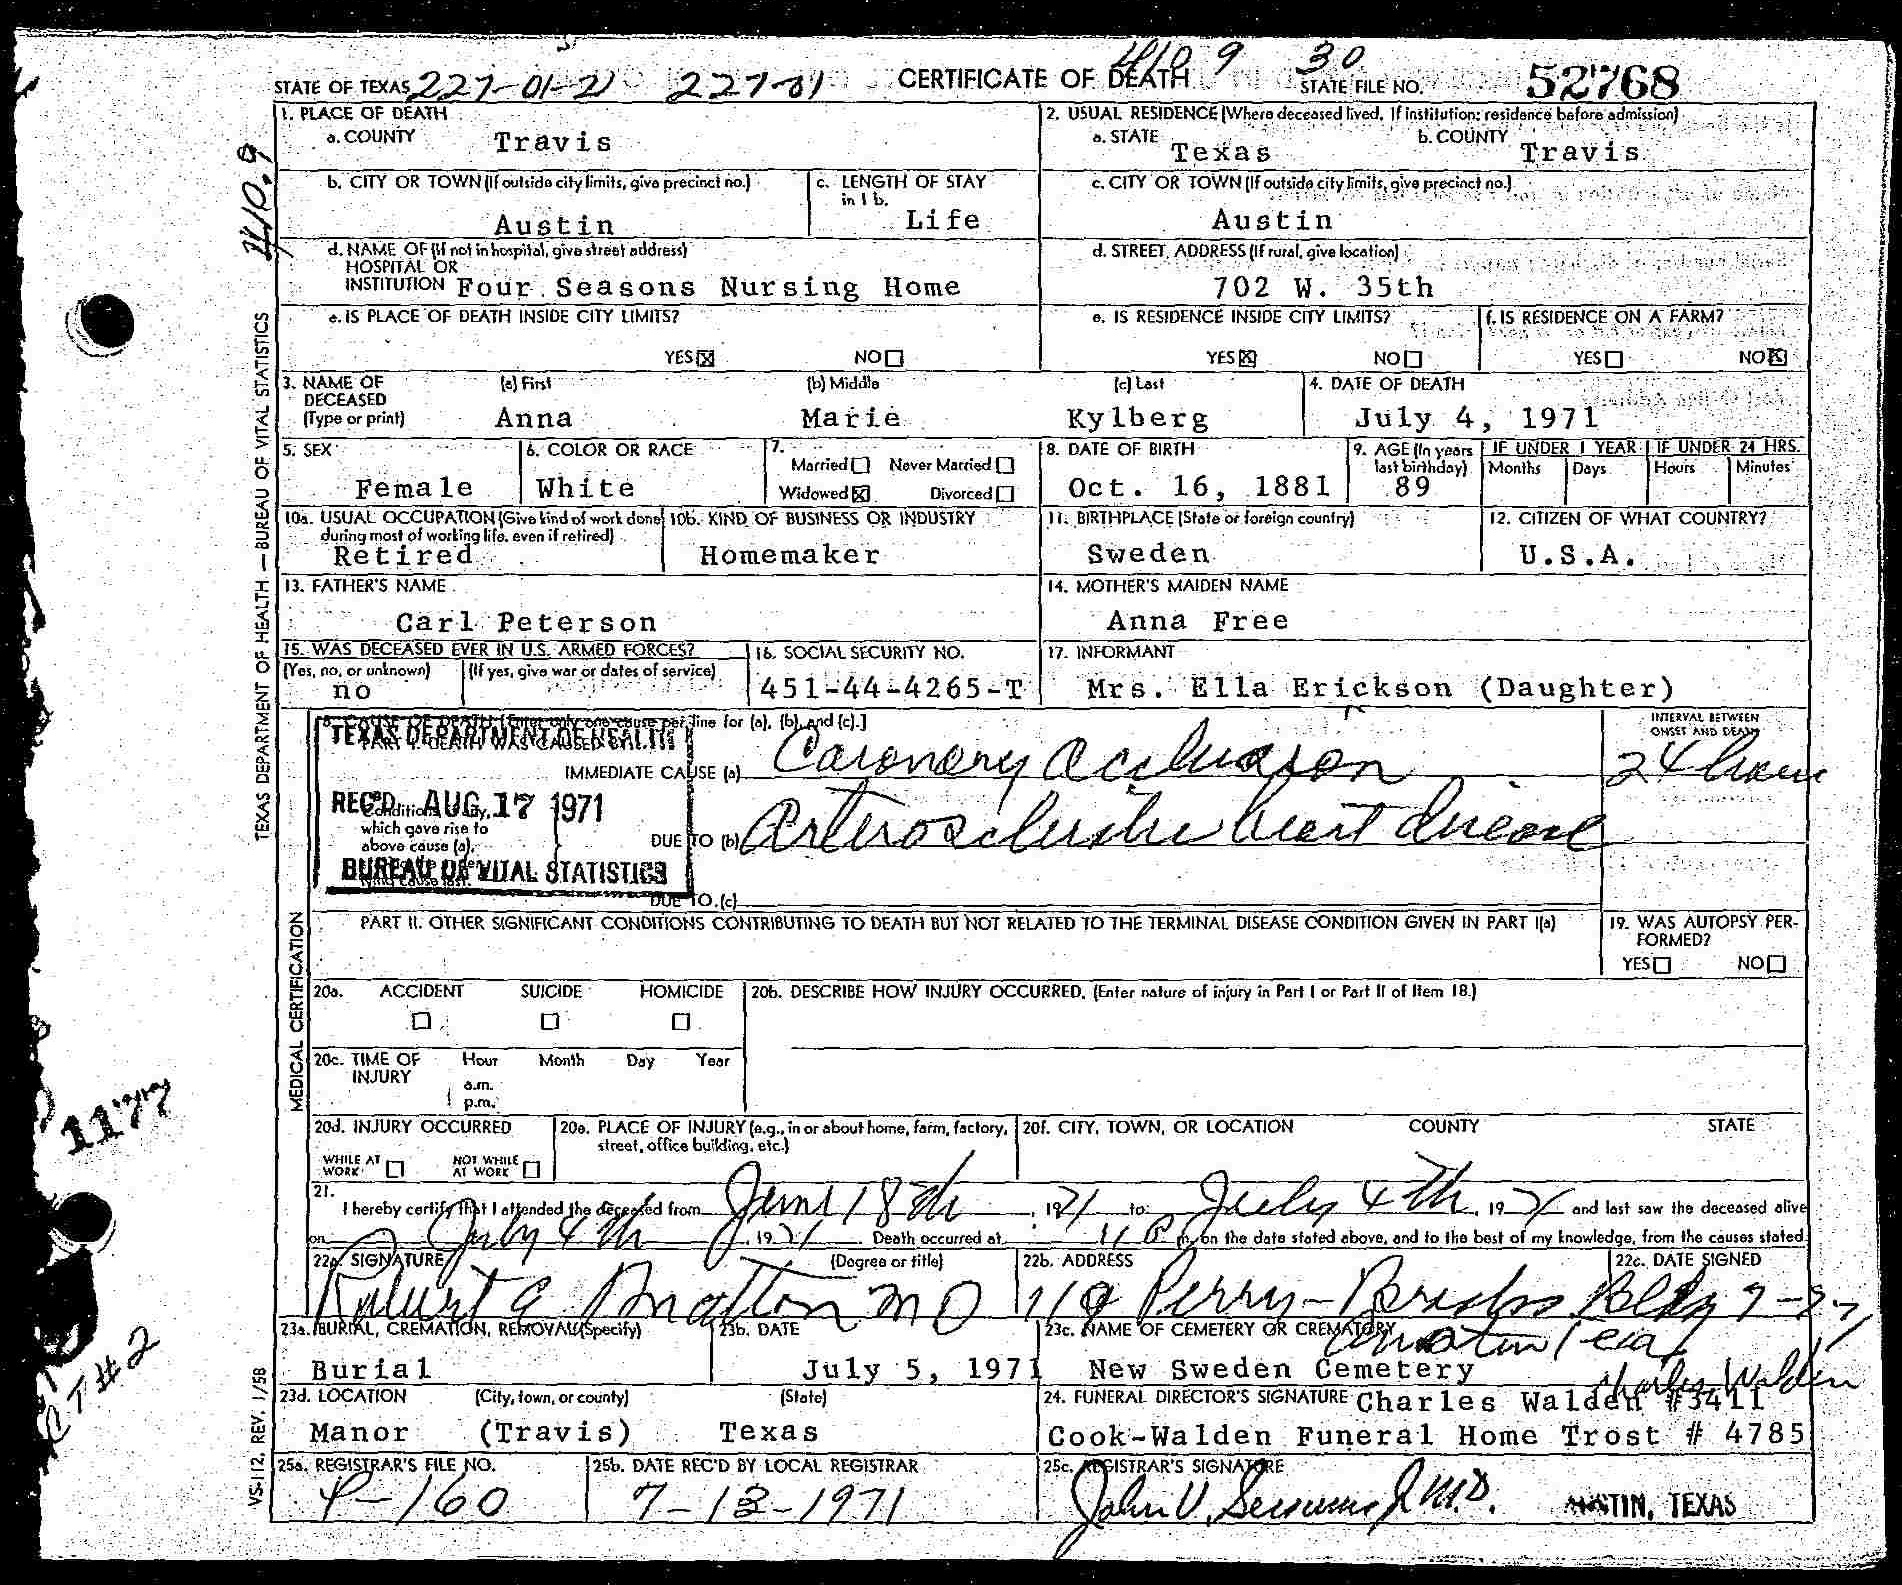 STATE OF TEXAS 227-01-21 227-01 CERTIFICATE OF DEATH 410 9 30 STATE FILE NO. 52768
1. PLACE OF DEATH
a. COUNTY Travis
2. USUAL RESIDENCE (Where deceased lived. If institution: residence before admission)
a. STATE Texas b. COUNTY Travis
b. CITY OR TOWN (If outside city limits, give precinct no.) Austin
c. LENGTH OF STAY in 1 b. Life
c. CITY OR TOWN (If outside city limits, give precinct no.) Austin
d. NAME OF (If not in hospital, give street address)
HOSPITAL OR
INSTITUTION Four Seasons Nursing Home
d. STREET ADDRESS (If rural, give location)
702 W. 35th
e. IS PLACE OF DEATH INSIDE CITY LIMITS?
YES ☒ NO ☐
e. IS RESIDENCE INSIDE CITY LIMITS?
YES ☒ NO ☐
f. IS RESIDENCE ON A FARM?
YES ☐ NO ☒
3. NAME OF DECEASED (Type or print)
(a) First (b) Middle (c) Last
Anna Marie Kylberg
4. DATE OF DEATH
July 4, 1971
5. SEX Female
6. COLOR OR RACE White
7. Married ☐ Never Married ☐
Widowed ☒ Divorced ☐
8. DATE OF BIRTH Oct. 16, 1881
9. AGE (In years last birthday) 89
IF UNDER 1 YEAR Months Days
IF UNDER 24 HRS. Hours Minutes
10a. USUAL OCCUPATION (Give kind of work done during most of working life, even if retired)
Retired
10b. KIND OF BUSINESS OR INDUSTRY
Homemaker
11. BIRTHPLACE (State or foreign country)
Sweden
12. CITIZEN OF WHAT COUNTRY?
U.S.A.
13. FATHER'S NAME
Carl Peterson
14. MOTHER'S MAIDEN NAME
Anna Free
15. WAS DECEASED EVER IN U.S. ARMED FORCES?
(Yes, no, or unknown) (If yes, give war or dates of service)
no
16. SOCIAL SECURITY NO.
451-44-4265-T
17. INFORMANT
Mrs. Ella Erickson (Daughter)
18. CAUSE OF DEATH [Enter only one cause per line for (a), (b), and (c).]
PART I. DEATH WAS CAUSED BY:
TEXAS DEPARTMENT OF HEALTH
REC'D AUG 17 1971
BUREAU OF VITAL STATISTICS
IMMEDIATE CAUSE (a) Coronary Occlusion
INTERVAL BETWEEN ONSET AND DEATH
24 hours
which gave rise to
above cause (a),
lying cause last.
DUE TO (b) Arteriosclerotic heart disease
DUE TO (c)
PART II. OTHER SIGNIFICANT CONDITIONS CONTRIBUTING TO DEATH BUT NOT RELATED TO THE TERMINAL DISEASE CONDITION GIVEN IN PART I(a)
19. WAS AUTOPSY PERFORMED?
YES ☐ NO ☐
20a. ACCIDENT SUICIDE HOMICIDE
☐ ☐ ☐
20b. DESCRIBE HOW INJURY OCCURRED. (Enter nature of injury in Part I or Part II of Item 18.)
20c. TIME OF INJURY Hour Month Day Year
a.m.
p.m.
20d. INJURY OCCURRED
WHILE AT WORK ☐ NOT WHILE AT WORK ☐
20e. PLACE OF INJURY (e.g., in or about home, farm, factory, street, office building, etc.)
20f. CITY, TOWN, OR LOCATION COUNTY STATE
21. I hereby certify that I attended the deceased from June 18th, 1971 to July 4th, 1971 and last saw the deceased alive
on July 4th, 1971. Death occurred at 11 P m, on the date stated above, and to the best of my knowledge, from the causes stated.
22a. SIGNATURE (Degree or title)
MD
22b. ADDRESS
Perry-Brooks Bldg
Austin Texas
22c. DATE SIGNED
23a. BURIAL, CREMATION, REMOVAL (Specify)
Burial
23b. DATE
July 5, 1971
23c. NAME OF CEMETERY OR CREMATORY
New Sweden Cemetery
23d. LOCATION (City, town, or county) (State)
Manor (Travis) Texas
24. FUNERAL DIRECTOR'S SIGNATURE Charles Walden #3411
Charles Walden
Cook-Walden Funeral Home Trost # 4785
25a. REGISTRAR'S FILE NO.
P-160
25b. DATE REC'D BY LOCAL REGISTRAR
7-13-1971
25c. REGISTRAR'S SIGNATURE
John V. M.D. AUSTIN, TEXAS
TEXAS DEPARTMENT OF HEALTH — BUREAU OF VITAL STATISTICS
MEDICAL CERTIFICATION
VS-112, REV. 1/58
410.9
1177
CT#2